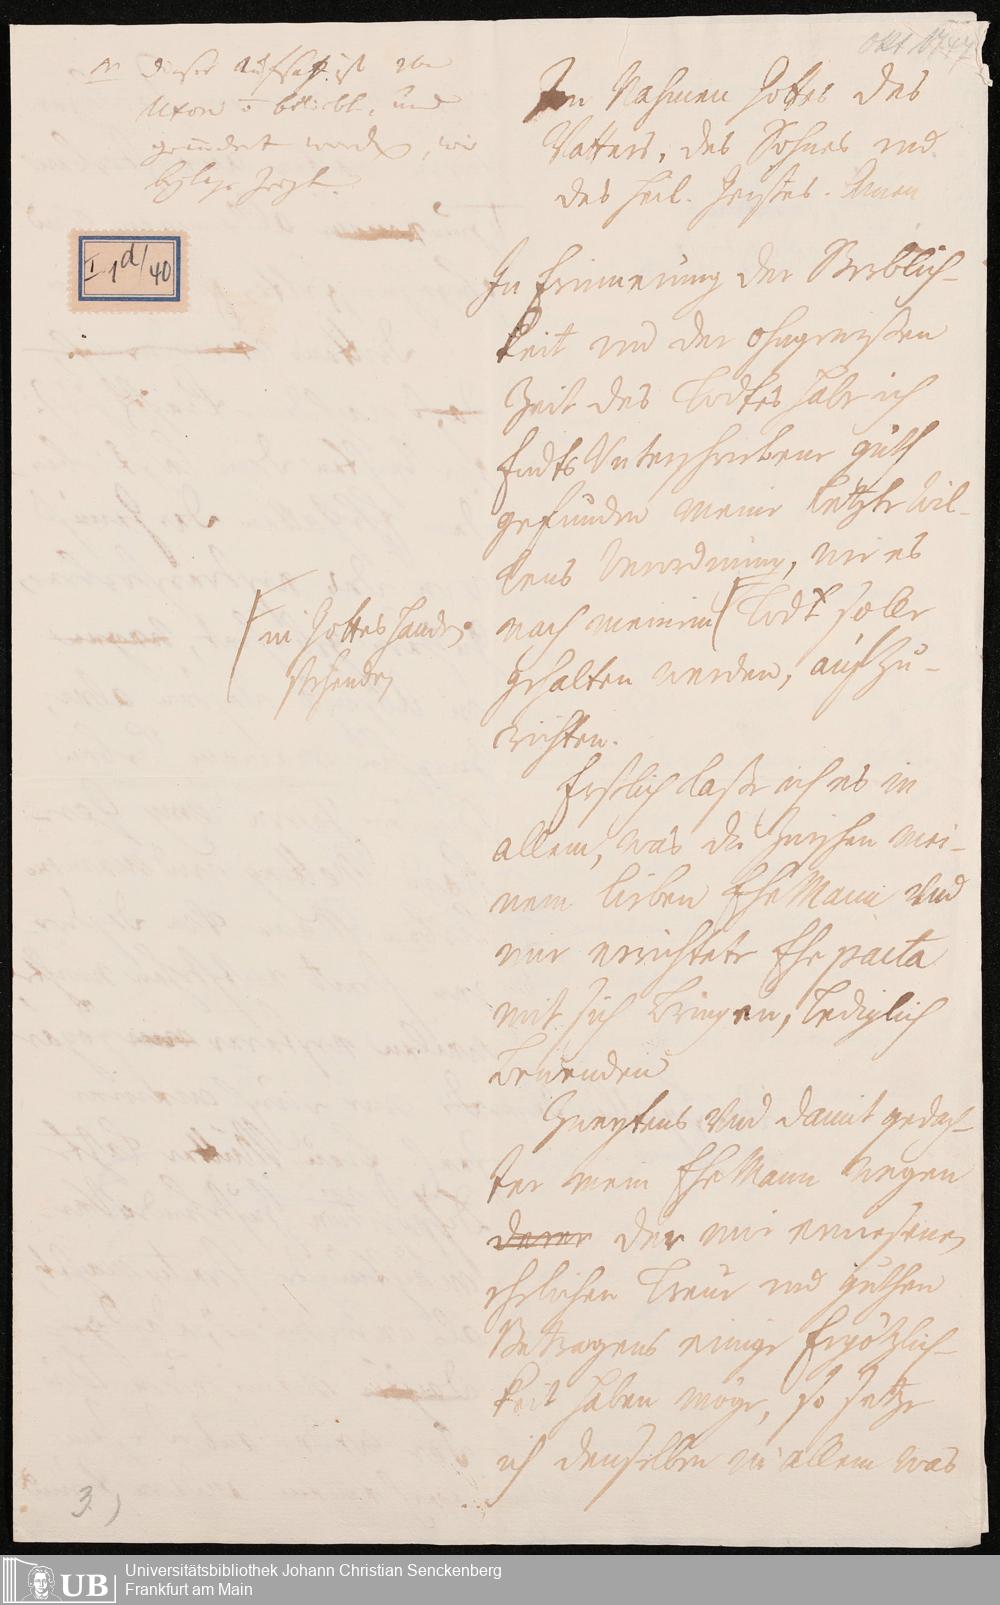 Okt 1747
NB dieser aufsatz ist von
Uxore ō beliebt, und
geändert worden, wie
beylage zeigt.
I 1 d/40
Im Nahmen Gottes des
Vatters, des Sohnes und
des Heil. Geistes. Amen
In Erinnerung der Sterblich-
keit und der ohngewissen
Zeit des Todtes habe ich
Endts Unterschriebene guth
gefunden meine Letzte Wil-
lens Verordnung, wie es
nach meinem [ Todt solle
gehalten werden, auf zu-
richten.
[ in Gottes Handen
stehenden
Erstlich lasse ich es in
allem, was die zwischen mei-
nem lieben EheMann und
mir errichtete Ehe pacta
mit sich bringen, Lediglich
bewenden
Zweytens Und damit gedach-
ter mein EheMann wegen
derer der mir erwiesenen
ehelichen Treue und guthen
Betragens einige Ergötzlich-
keit haben möge, so setze
ich denselben in allem was
3)
Universitätsbibliothek Johann Christian Senckenberg
Frankfurt am Main
UB